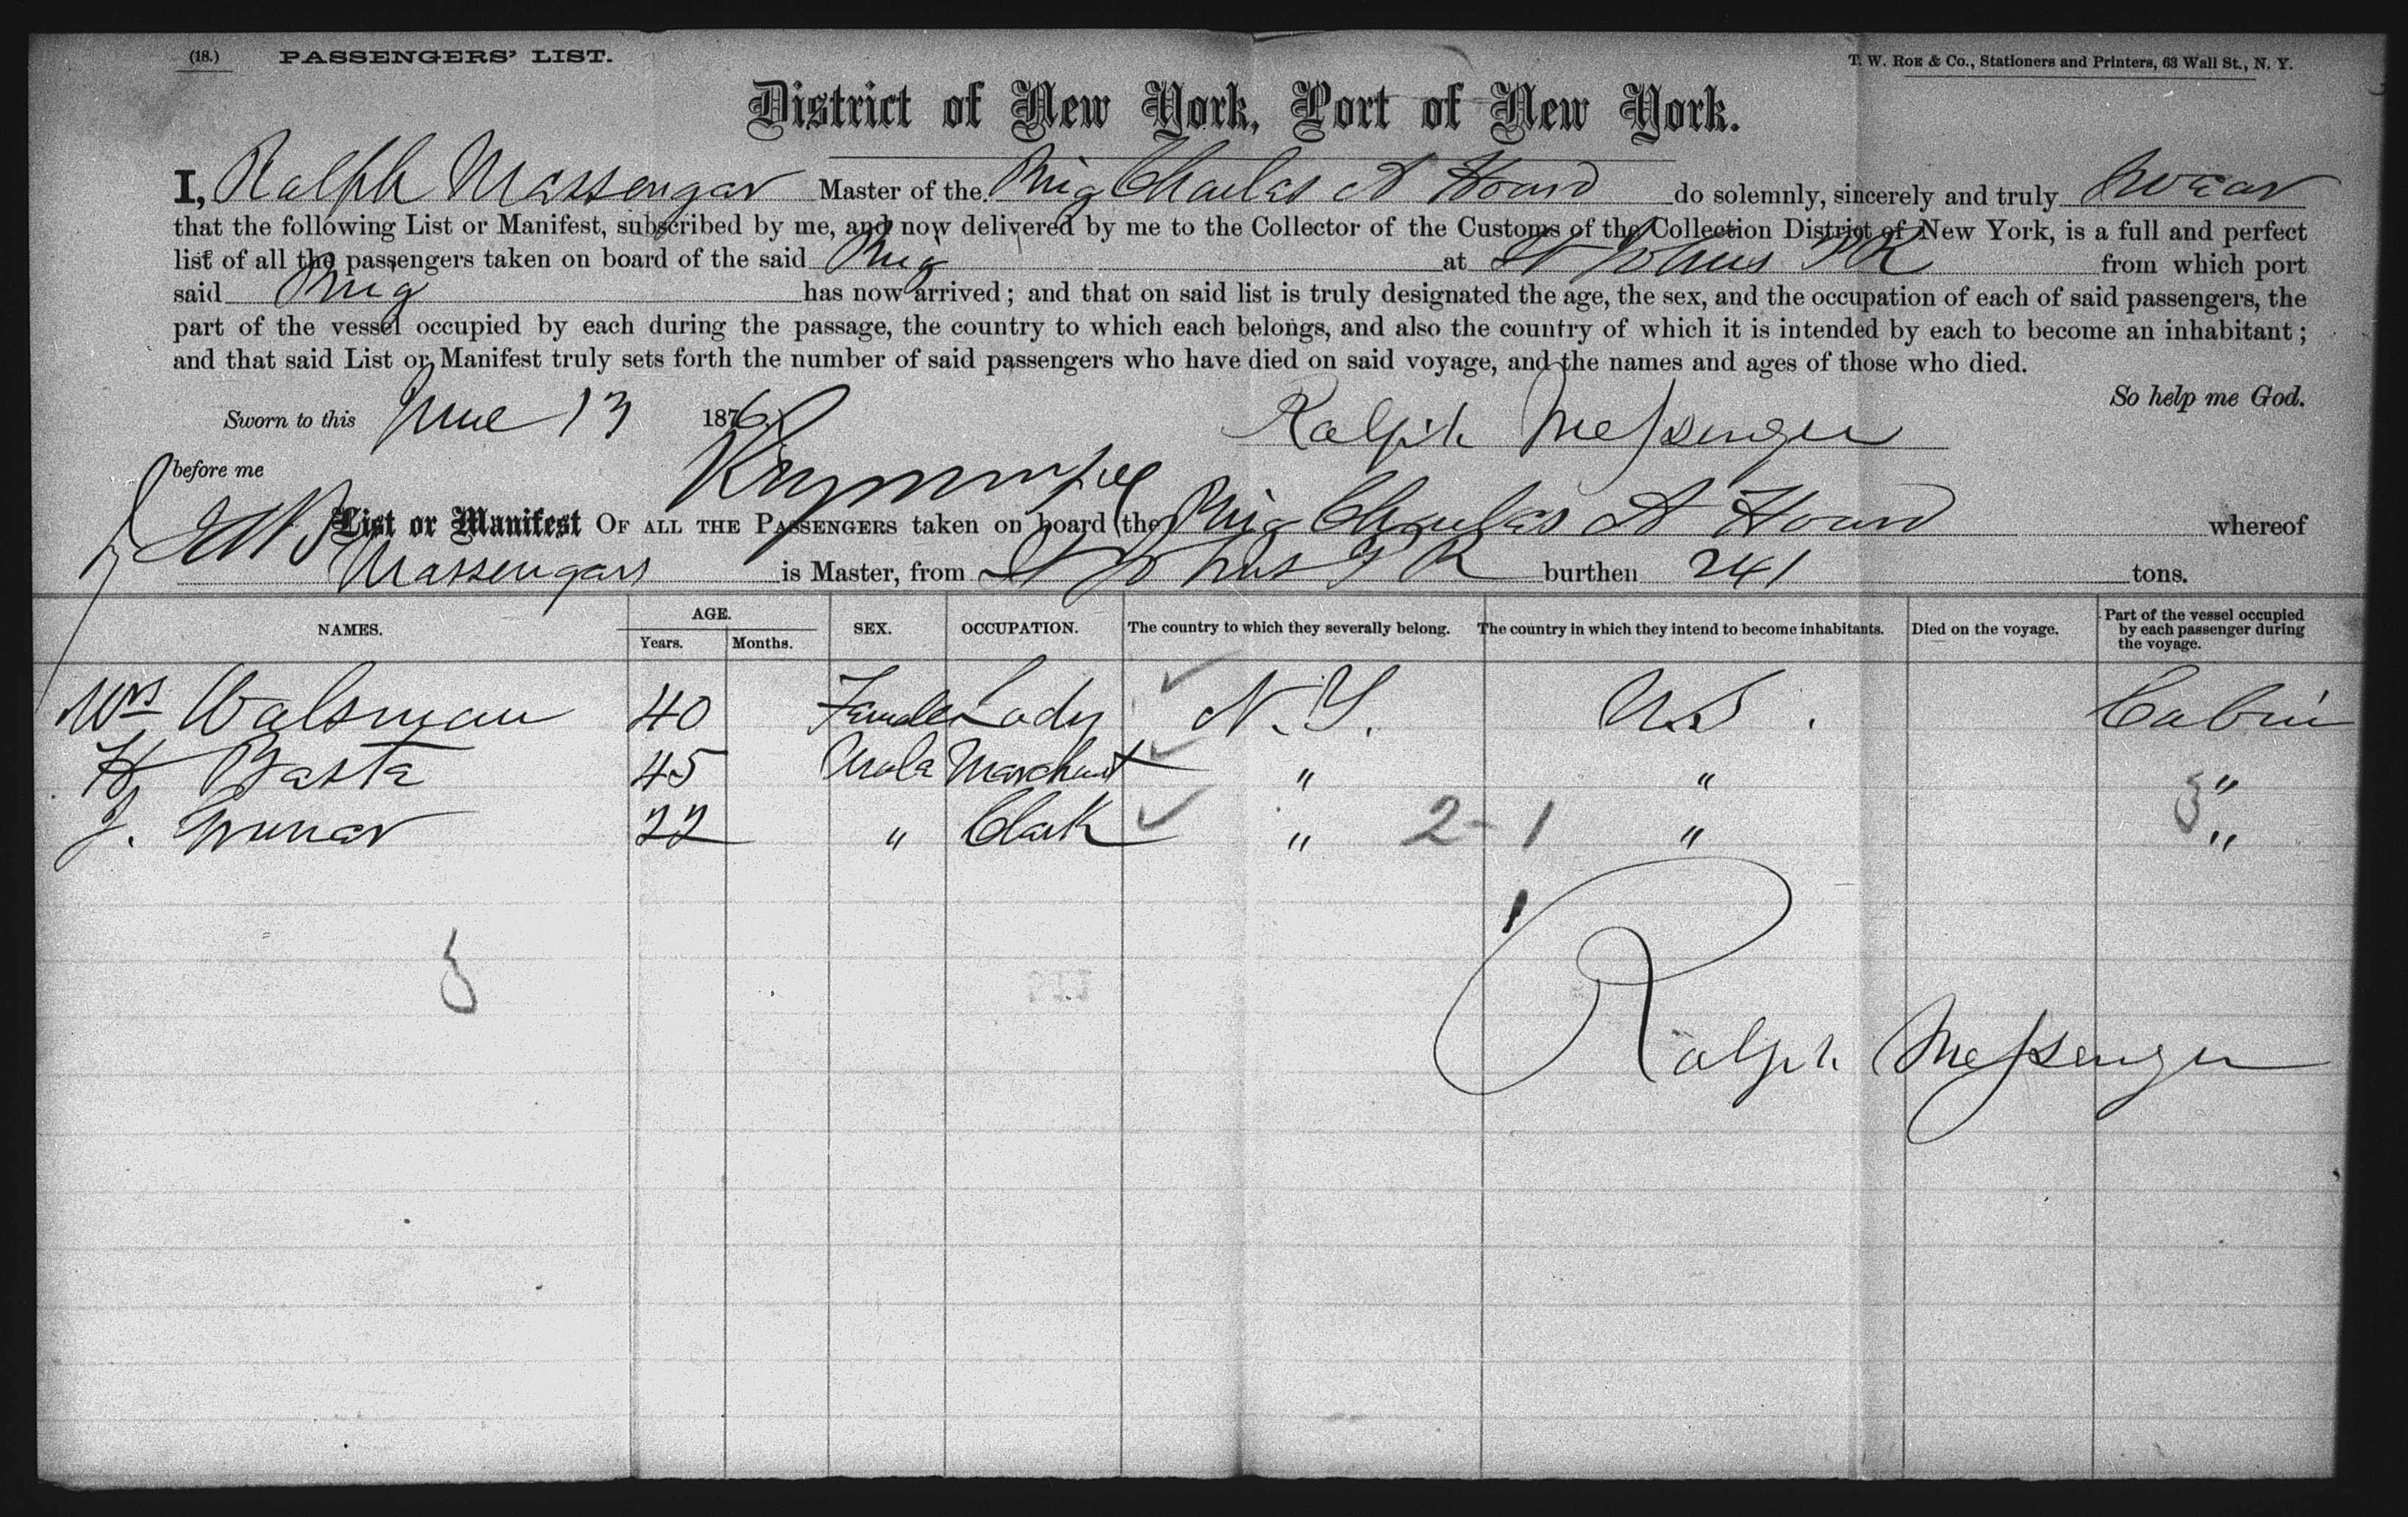 (18.) PASSENGERS' LIST. T. W. ROE & Co., Stationers and Printers, 63 Wall St., N. Y.
District of New York, Port of New York.
I, Ralph Massengar Master of the Brig Charles A Hoard do solemnly, sincerely and truly swear
that the following List or Manifest, subscribed by me, and now delivered by me to the Collector of the Customs of the Collection District of New York, is a full and perfect
list of all the passengers taken on board of the said Brig at St Johns P R from which port
said Brig has now arrived; and that on said list is truly designated the age, the sex, and the occupation of each of said passengers, the
part of the vessel occupied by each during the passage, the country to which each belongs, and also the country of which it is intended by each to become an inhabitant;
and that said List or Manifest truly sets forth the number of said passengers who have died on said voyage, and the names and ages of those who died.
So help me God.
Sworn to this June 13 1876 Ralph Messenger
before me
List or Manifest OF ALL THE PASSENGERS taken on board the Brig Charles A Hoard whereof
Massengar is Master, from St Johns P R burthen 241 tons.
NAMES. AGE. Years. Months. SEX. OCCUPATION. The country to which they severally belong. The country in which they intend to become inhabitants. Died on the voyage. Part of the vessel occupied by each passenger during the voyage.
Mrs Walsman 40 Female Lady N.Y. U.S. Cabin
H Basta 45 Male Marchant " " "
J. 22 " Clark " 2-1 " "
1
Ralph Messenger